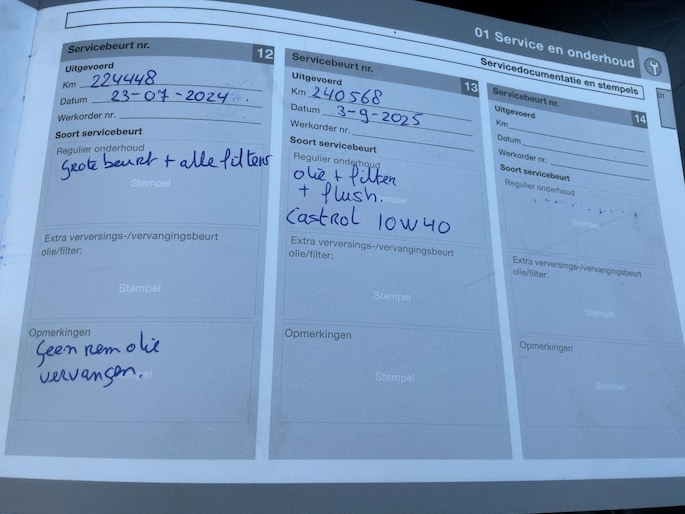 01 Service en onderhoud
Servicedocumentatie en stempels
01
Servicebeurt nr. 12
Uitgevoerd
Km 224448
Datum 23-07-2024
Werkorder nr.
Soort servicebeurt
Regulier onderhoud
Grote beurt + alle filters
Stempel
Extra verversings-/vervangingsbeurt
olie/filter:
Stempel
Opmerkingen
Geen rem olie
vervangen.
Servicebeurt nr. 13
Uitgevoerd
Km 240568
Datum 3-9-2025
Werkorder nr.
Soort servicebeurt
Regulier onderhoud
olie + filter
+ flush.
Castrol 10W40
Extra verversings-/vervangingsbeurt
olie/filter:
Stempel
Opmerkingen
Stempel
Servicebeurt nr. 14
Uitgevoerd
Km
Datum
Werkorder nr.
Soort servicebeurt
Regulier onderhoud
Stempel
Extra verversings-/vervangingsbeurt
olie/filter:
Stempel
Opmerkingen
Stempel